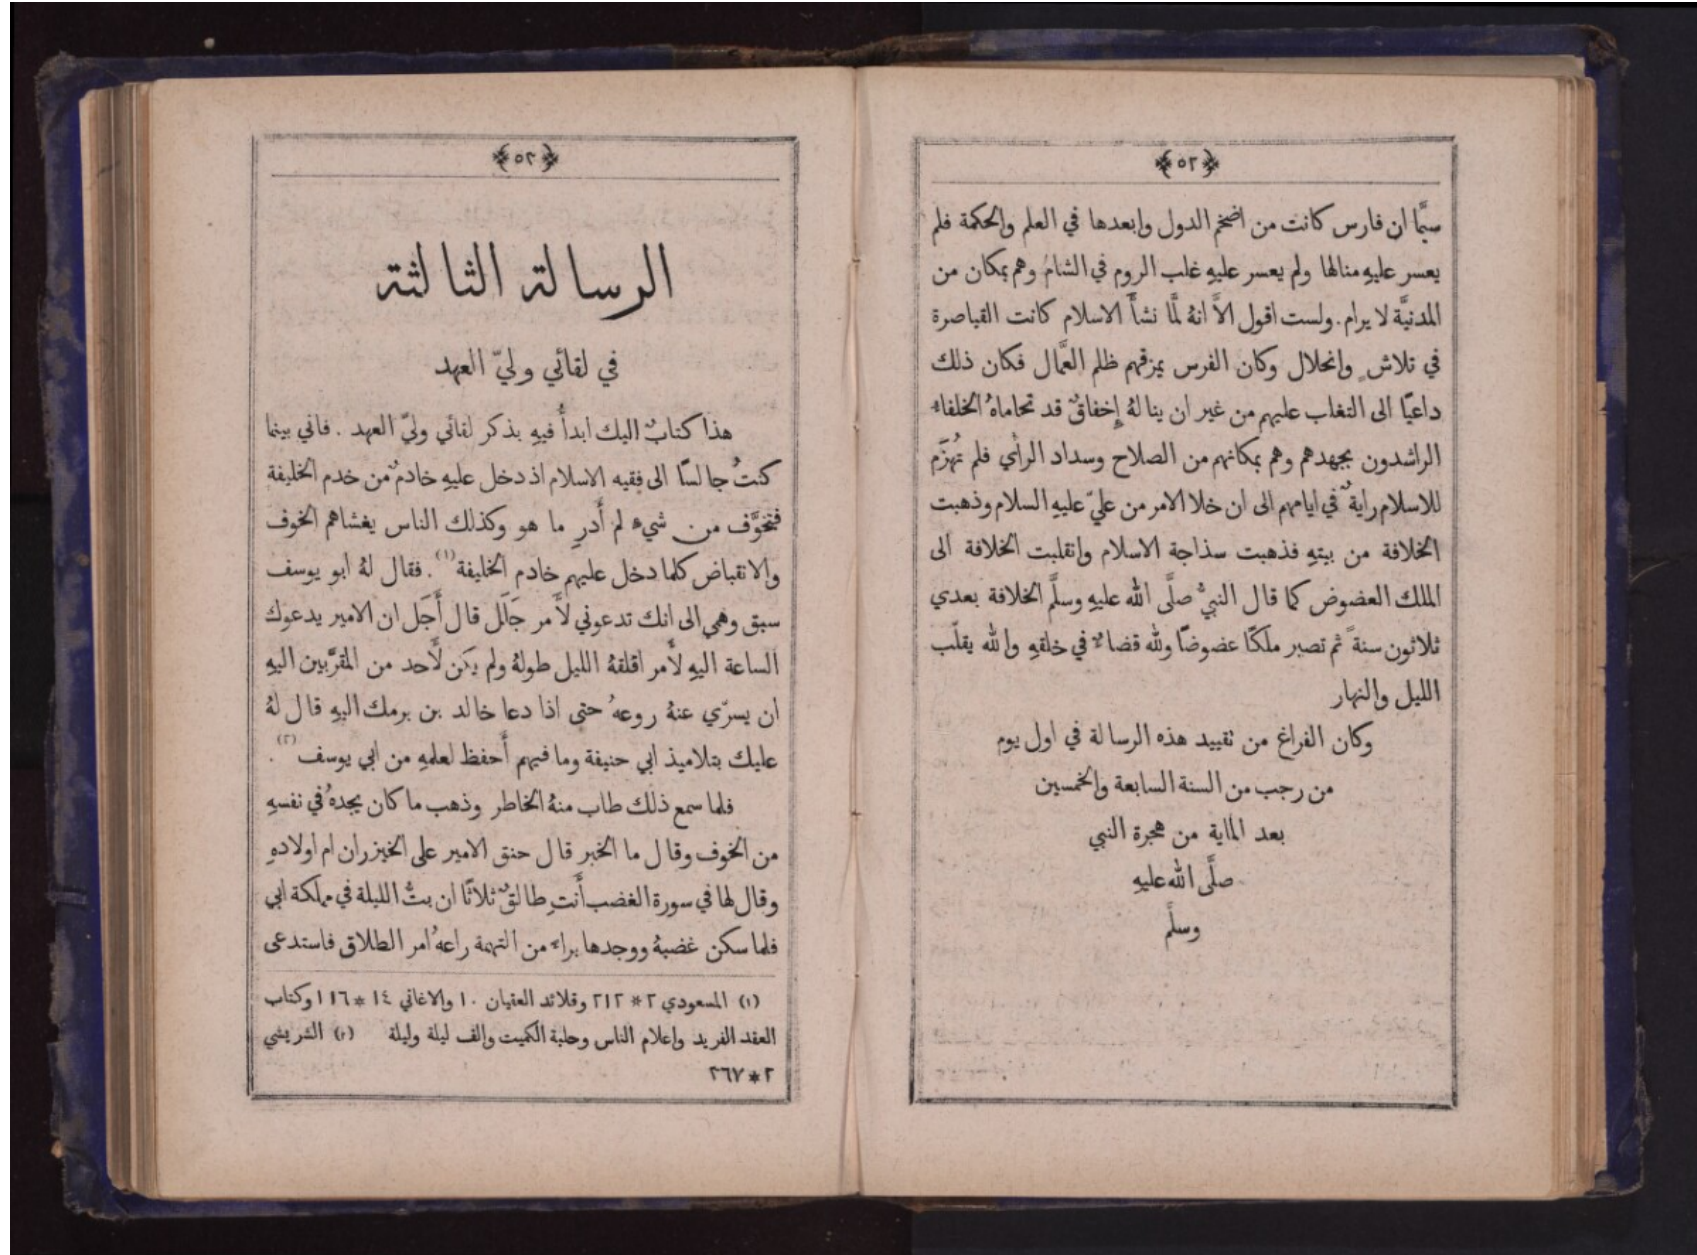 ﴿٥٢﴾
سيَّما ان فارس كانت من اضخم الدول وابعدها في العلم والحكمة فلم
يعسر عليهِ منالها ولم يعسر عليهِ غلب الروم في الشام وهم بمكان من
المدنيَّة لا يرام. ولست اقول الاَّ انهُ لمَّا نشأَ الاسلام كانت القياصرة
في تلاشٍ وانحلال وكان الفرس يمزقهم ظلم العمَّال فكان ذلك
داعيًا الى التغلب عليهم من غير ان ينالهُ إِخفاقٌ قد تحاماهُ الخلفاءُ
الراشدون بجهدهم وهم بمكانهم من الصلاح وسداد الرأي فلم تُهزَم
للاسلام رايةٌ في ايامهم الى ان خلا الامر من عليّ عليهِ السلام وذهبت
الخلافة من بيتهِ فذهبت سذاجة الاسلام وانقلبت الخلافة الى
الملك العضوض كما قال النبيُّ صلَّى الله عليهِ وسلَّم الخلافة بعدي
ثلاثون سنةً ثم تصير ملكًا عضوضًا ولله قضاءٌ في خلقهِ والله يقلّب
الليل والنهار
وكان الفراغ من تقييد هذه الرسالة في اول يوم
من رجب من السنة السابعة والخمسين
بعد الماية من هجرة النبي
صلَّى الله عليهِ
وسلَّم
﴿٥٣﴾
الرسالة الثالثة
في لقائي وليّ العهد
هذا كتابٌ اليك ابدأُ فيهِ بذكر لقائي وليّ العهد . فاني بينما
كنتُ جالسًا الى فقيه الاسلام اذ دخل عليهِ خادمٌ من خدم الخليفة
فتخوَّف من شيءٍ لم أَدرِ ما هو وكذلك الناس يغشاهم الخوف
والانقباض كلما دخل عليهم خادم الخليفة(١) . فقال لهُ ابو يوسف
سبق وهمي الى انك تدعوني لأَمر جَلَل قال أَجَل ان الامير يدعوك
الساعة اليهِ لأَمر اقلقهُ الليل طولهُ ولم يكن لأَحد من المقرَّبين اليهِ
ان يسرّي عنهُ روعهُ حتى اذا دعا خالد بن برمك اليهِ قال لهُ
عليك بتلاميذ ابي حنيفة وما فيهم أَحفظ لعلمهِ من ابي يوسف (٢) .
فلما سمع ذلك طاب منهُ الخاطر وذهب ما كان يجدهُ في نفسهِ
من الخوف وقال ما الخبر قال حنق الامير على الخيزران ام اولادهِ
وقال لها في سورة الغضب أَنتِ طالقٌ ثلاثًا ان بتُّ الليلة في مملكة ابي
فلما سكن غضبهُ ووجدها براءٍ من التهمة راعهُ امر الطلاق فاستدعى
(١) المسعودي ٢ * ٢١٢ وقلائد العقيان ١٠ والاغاني ١٤ * ١١٦ وكتاب
العقد الفريد واعلام الناس وحلبة الكميت والف ليلة وليلة (٢) الشريشي
٢ * ٢٦٧